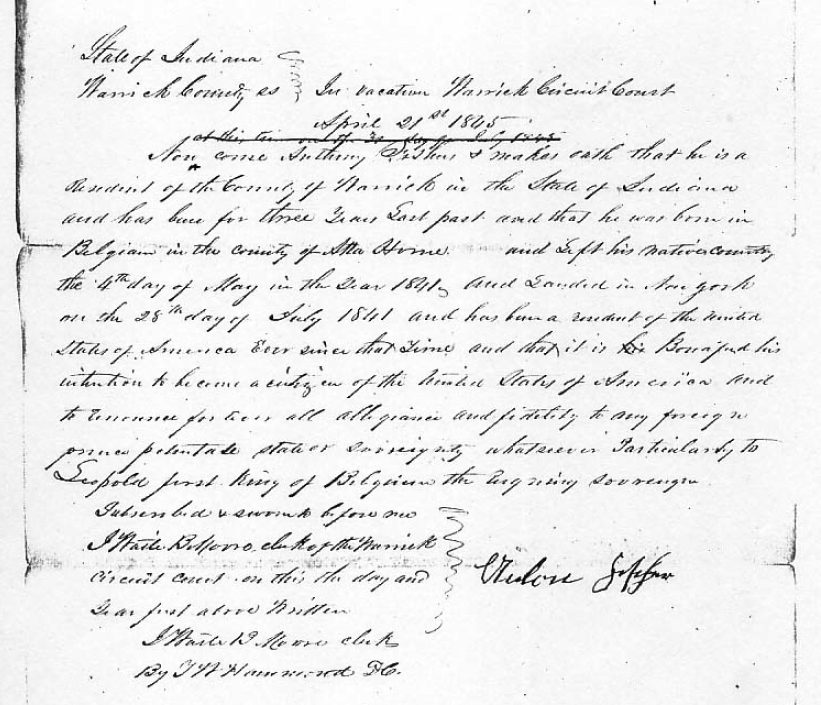 State of Indiana
Warrick County ss In vacation Warrick Circuit Court
April 21st 1845
at this day July 1845
Now come Anthony & makes oath that he is a
Resident of the County of Warrick in the State of Indiana
and has been for three Years Last past and that he was born in
Belgium in the county of and Left his native country
the 4th day of May in the Year 1841, and Landed in New york
on the 28th day of July 1841 and has been a resident of the United
States of America Ever since that Time and that it is his Bonafied his
intention to become a citizen of the United States of America and
to renounce forever all allegiance and fidelity to any foreign
prince potentate state or sovreignty whatsoever Particularly to
Leopold first King of Belgium the sovreign
Subscribed & sworn to before me
Moore clerk of the Warrick
circuit court on this the day and
Year first above Written
Moore clerk
By T W Hammond DC.